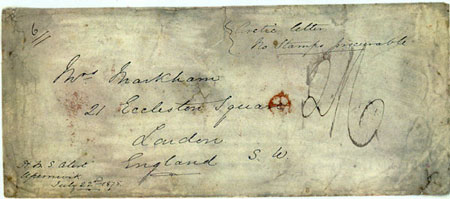 Arctic letter
No Stamps procurable
Mrs Markham
21 Eccleston Square
London
England S. W
H. M. S. Alert
Upernivik
July 22nd 1875